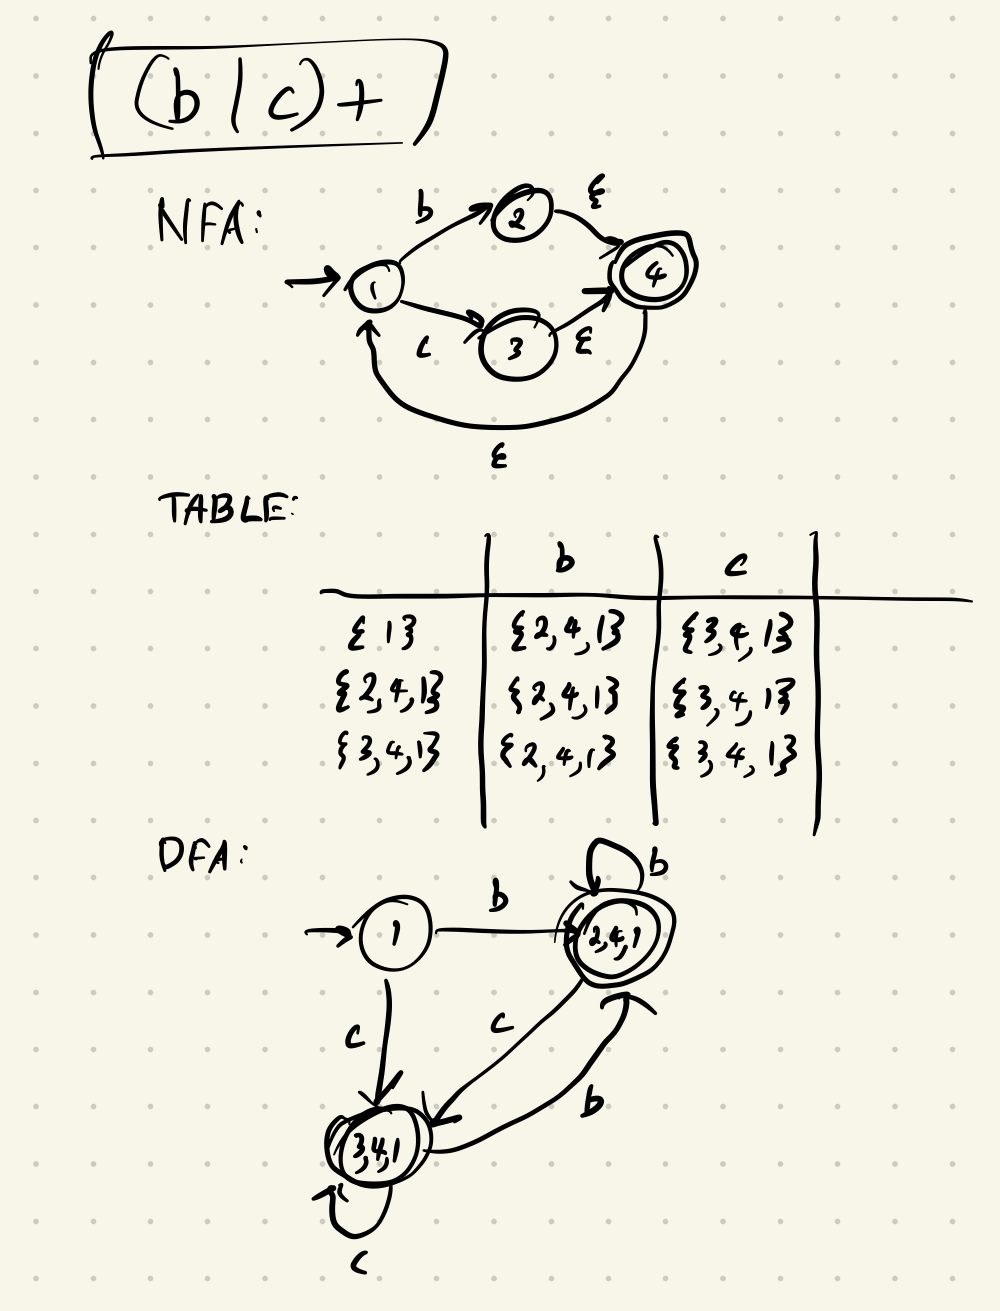 (b | c)+
NFA:
b
ε
2
1
4
c
3
ε
ε
TABLE:
b c
{1} {2,4,1} {3,4,1}
{2,4,1} {2,4,1} {3,4,1}
{3,4,1} {2,4,1} {3,4,1}
DFA:
b
b
1
2,4,1
c
c
b
3,4,1
c